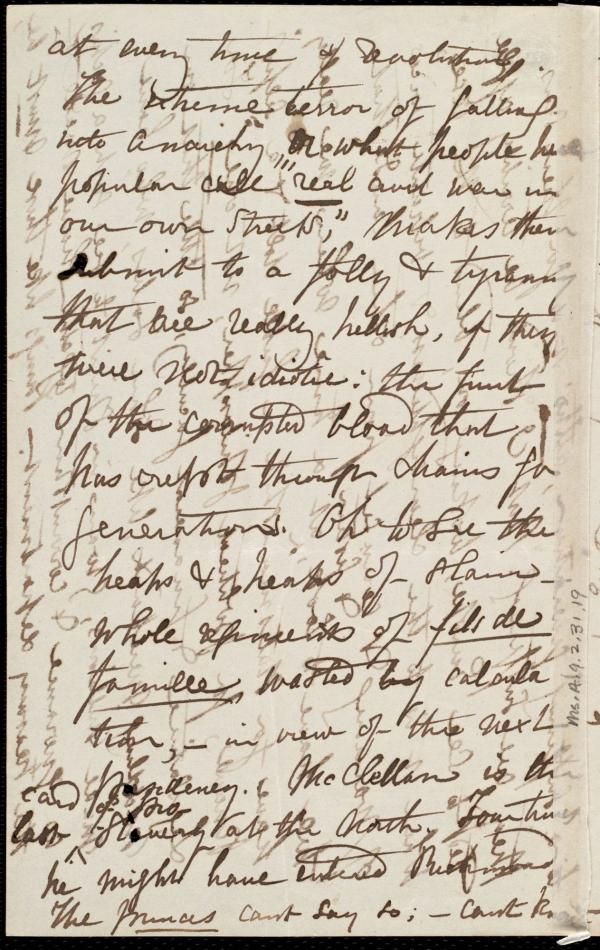 at every time of revolution
The extreme terror of falling
into anarchy or what people he
popular call "real civil war in
our own Streets," makes them
submit to a folly & tyrann
that are really hellish, if they
were not idiotic: the fruit
of the corrupted blood that
has crept through chains fo
generations. Oh to see the
heaps & heaps of slain –
whole regiments of fils de
famille, wasted by calcula
tion, – in view of the next
card Presidency. McClellan is the
last pro Slavery at the North. Four times
he might have entered Richmond
The Princes cant say so; – cant
Ms.A.9.2.31.19